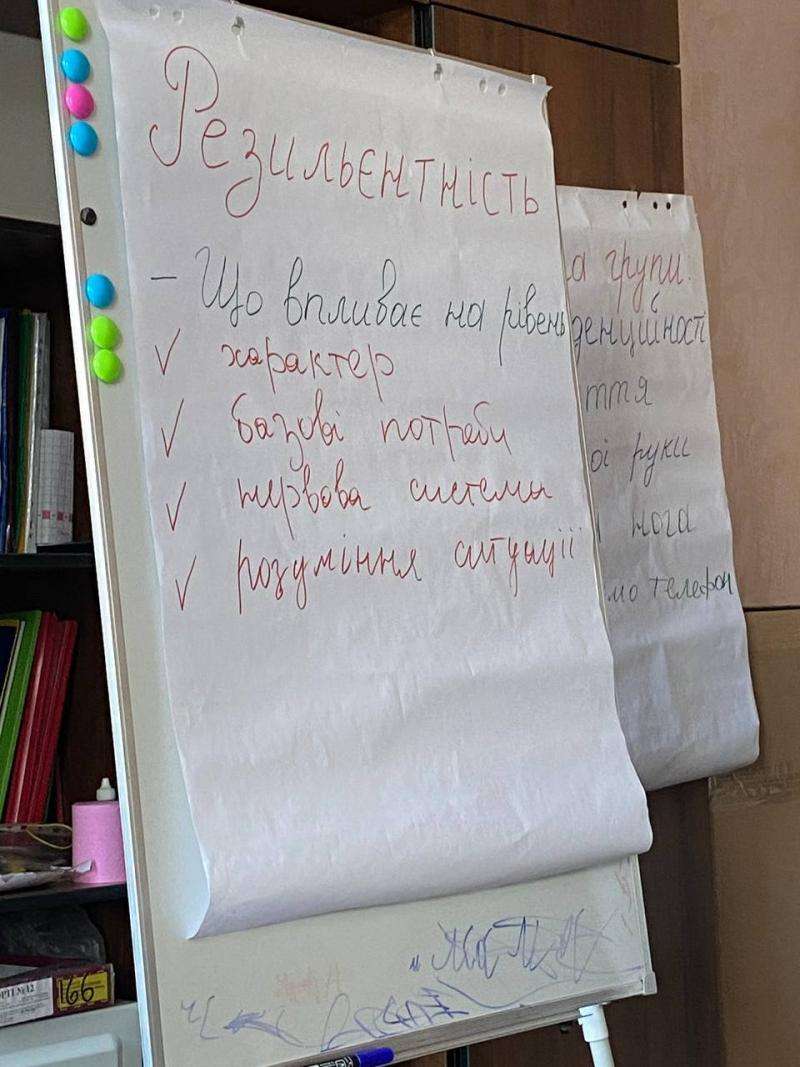 Резильєнтність
– Що впливає на рівень
✓ характер
✓ базові потреби
✓ нервова система
✓ розуміння ситуації
а групи.
денційності
ття
ої руки
нога
мо телефон
166